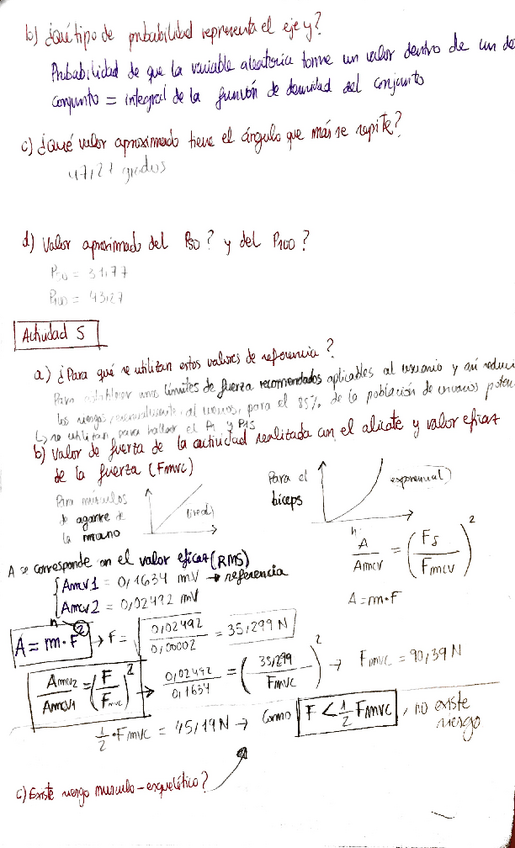 b) ¿Qué tipo de probabilidad representa el eje y?
Probabilidad de que la variable aleatoria tome un valor dentro de un de
conjunto = integral de la función de densidad del conjunto
c) ¿Qué valor aproximado tiene el ángulo que más se repite?
47,27 grados
d) Valor aproximado del P50? y del P100?
P50 = 31,77
P100 = 43,27
Actividad 5
a) ¿Para qué se utilizan estos valores de referencia?
Para establecer unos límites de fuerza recomendados aplicables al usuario y así reducir
los riesgos, al para el 85% de la población de usuarios poten
↳ se utilizan para hallar el P1 y P15
b) Valor de fuerza de la actividad realizada con el alicate y valor eficaz
de la fuerza (Fmvc)
Para músculos
de agarre de
la mano
lineal
Para el
bíceps
exponencial
A se corresponde con el valor eficaz (RMS)
Amcv1 = 0,1634 mV → referencia
Amcv2 = 0,02492 mV
A/Amcv = (Fs/Fmcv)²
A = m·F
A = m·F² → F = √(0,02492/0,00002) = 35,299 N
Amcv2/Amcv1 = (F/Fmvc)² → 0,02492/0,1634 = (35,299/Fmvc)² → Fmvc = 90,39 N
1/2 · Fmvc = 45,19 N → Como F < 1/2 Fmvc, no existe
riesgo
c) Existe riesgo musculo-esquelético?